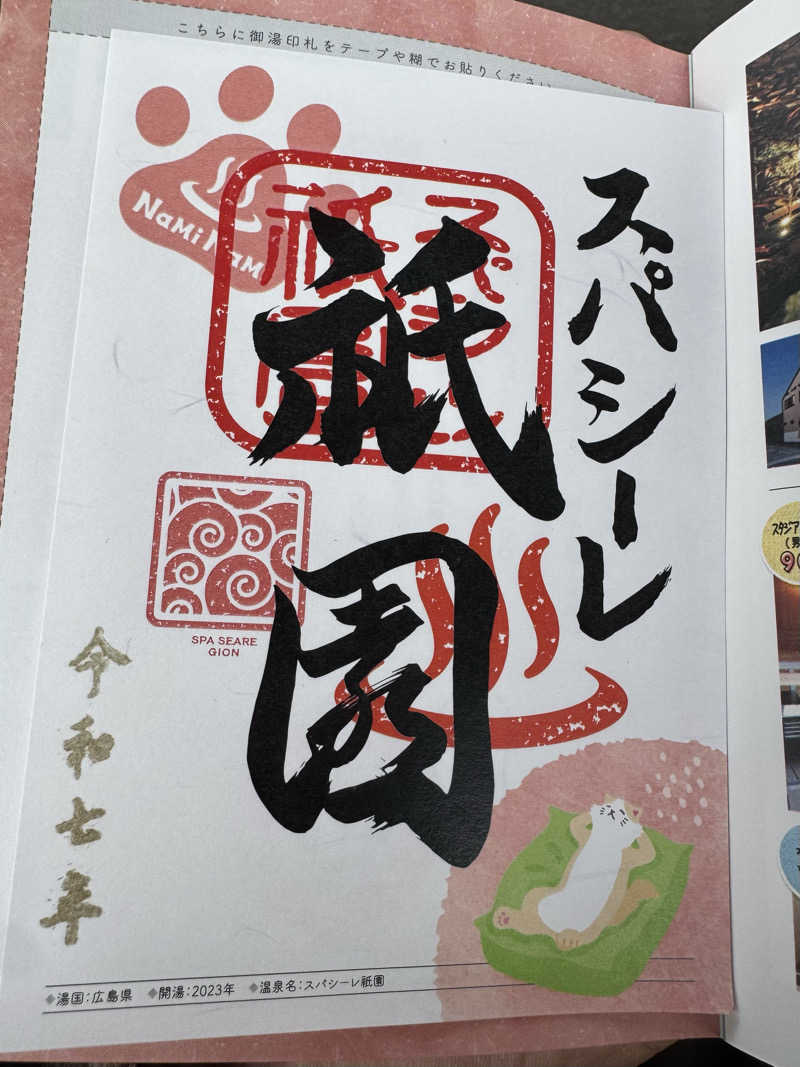 こちらに御湯印札をテープや糊でお貼りください
スパシーレ
祇園
NaMi NaM
SPA SEARE
GION
令和七年
◆湯国：広島県 ◆開湯：2023年 ◆温泉名：スパシーレ祇園
スタジア
(男